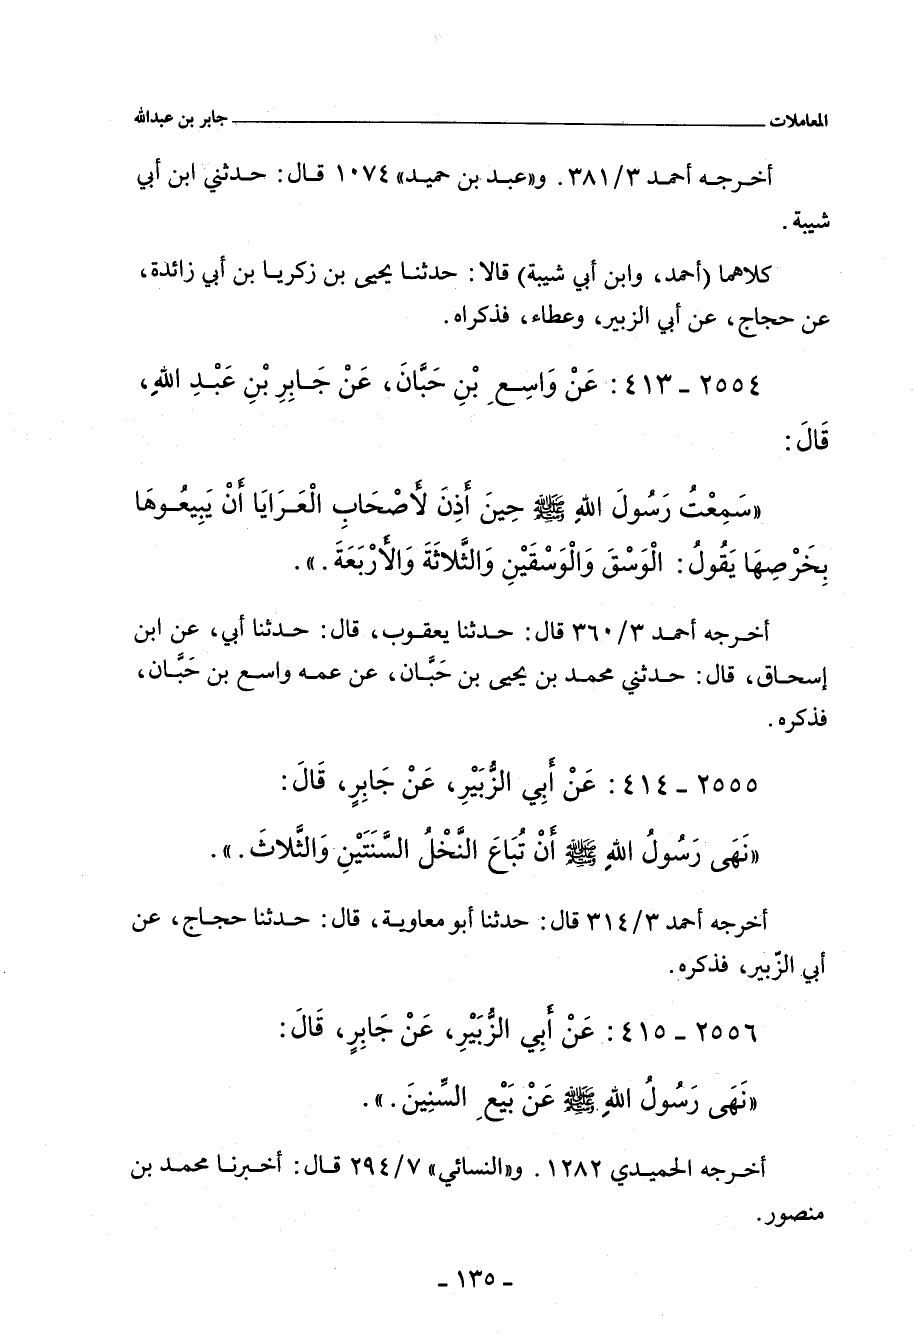 المعاملات ــــــــــــــــــــــــــــــــ جابر بن عبدالله
أخرجه أحمد ٣٨١/٣. و«عبد بن حميد» ١٠٧٤ قال: حدثني ابن أبي
شيبة.
كلاهما (أحمد، وابن أبي شيبة) قالا: حدثنا يحيى بن زكريا بن أبي زائدة،
عن حجاج، عن أبي الزبير، وعطاء، فذكراه.
٢٥٥٤ ـ ٤١٣: عَنْ وَاسِعِ بْنِ حَبَّانَ، عَنْ جَابِرِ بْنِ عَبْدِ اللهِ،
قَالَ:
«سَمِعْتُ رَسُولَ اللهِ ﷺ حِينَ أَذِنَ لأَصْحَابِ الْعَرَايَا أَنْ يَبِيعُوهَا
بِخَرْصِهَا يَقُولُ: الْوَسْقَ وَالْوَسْقَيْنِ وَالثَّلاثَةَ وَالأَرْبَعَةَ.».
أخرجه أحمد ٣٦٠/٣ قال: حدثنا يعقوب، قال: حدثنا أبي، عن ابن
إسحاق، قال: حدثني محمد بن يحيى بن حَبَّان، عن عمه واسع بن حَبَّان،
فذكره.
٢٥٥٥ ـ ٤١٤: عَنْ أَبِي الزُّبَيْرِ، عَنْ جَابِرٍ، قَالَ:
«نَهَى رَسُولُ اللهِ ﷺ أَنْ تُبَاعَ النَّخْلُ السَّنَتَيْنِ وَالثَّلاثَ.».
أخرجه أحمد ٣١٤/٣ قال: حدثنا أبو معاوية، قال: حدثنا حجاج، عن
أبي الزّبير، فذكره.
٢٥٥٦ ـ ٤١٥: عَنْ أَبِي الزُّبَيْرِ، عَنْ جَابِرٍ، قَالَ:
«نَهَى رَسُولُ اللهِ ﷺ عَنْ بَيْعِ السِّنِينَ.».
أخرجه الحميدي ١٢٨٢. و«النسائي» ٢٩٤/٧ قال: أخبرنا محمد بن
منصور.
ـ ١٣٥ ـ